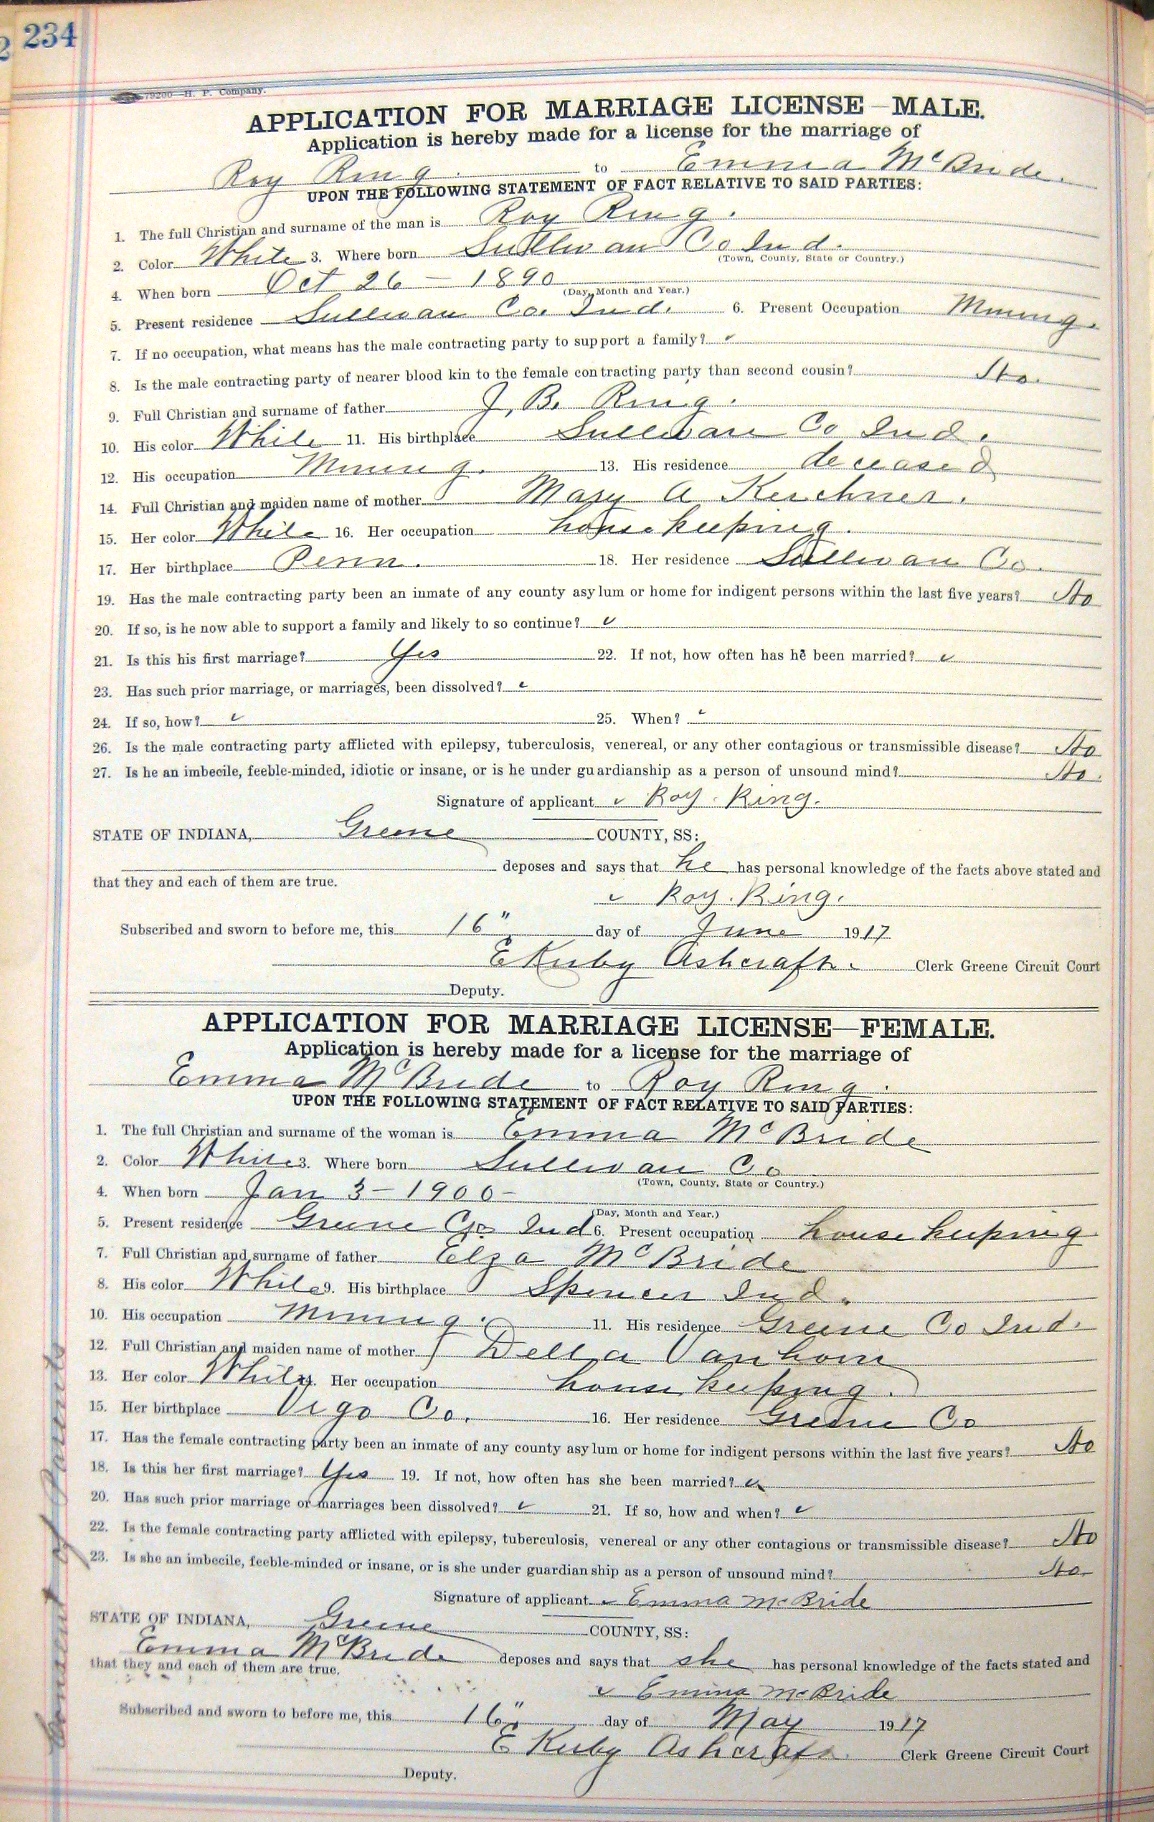 2
234
79200—H. P. Company.
APPLICATION FOR MARRIAGE LICENSE—MALE.
Application is hereby made for a license for the marriage of
Roy Ring to Emma McBride.
UPON THE FOLLOWING STATEMENT OF FACT RELATIVE TO SAID PARTIES:
1. The full Christian and surname of the man is Roy Ring.
2. Color White 3. Where born Sullivan Co Ind.
(Town, County, State or Country.)
4. When born Oct 26 - 1890
(Day, Month and Year.)
5. Present residence Sullivan Co. Ind. 6. Present Occupation Mining.
7. If no occupation, what means has the male contracting party to support a family?
8. Is the male contracting party of nearer blood kin to the female contracting party than second cousin? No.
9. Full Christian and surname of father J. B. Ring.
10. His color White 11. His birthplace Sullivan Co Ind.
12. His occupation Mining. 13. His residence deceased
14. Full Christian and maiden name of mother Mary A Kerchner.
15. Her color White 16. Her occupation housekeeping.
17. Her birthplace Penn. 18. Her residence Sullivan Co.
19. Has the male contracting party been an inmate of any county asylum or home for indigent persons within the last five years? No
20. If so, is he now able to support a family and likely to so continue?
21. Is this his first marriage? Yes 22. If not, how often has he been married?
23. Has such prior marriage, or marriages, been dissolved?
24. If so, how? 25. When?
26. Is the male contracting party afflicted with epilepsy, tuberculosis, venereal, or any other contagious or transmissible disease? No
27. Is he an imbecile, feeble-minded, idiotic or insane, or is he under guardianship as a person of unsound mind? No.
Signature of applicant Roy. Ring.
STATE OF INDIANA, Greene COUNTY, SS:
deposes and says that he has personal knowledge of the facts above stated and
that they and each of them are true.
Roy. Ring.
Subscribed and sworn to before me, this 16" day of June 1917
E Kirby Ashcraft. Clerk Greene Circuit Court
Deputy.
APPLICATION FOR MARRIAGE LICENSE—FEMALE.
Application is hereby made for a license for the marriage of
Emma McBride to Roy Ring.
UPON THE FOLLOWING STATEMENT OF FACT RELATIVE TO SAID PARTIES:
1. The full Christian and surname of the woman is Emma McBride
2. Color White 3. Where born Sullivan Co
(Town, County, State or Country.)
4. When born Jan 3 - 1900 -
(Day, Month and Year.)
5. Present residence Greene Co. Ind 6. Present occupation housekeeping
7. Full Christian and surname of father Elza McBride
8. His color White 9. His birthplace Spencer Ind.
10. His occupation Mining. 11. His residence Greene Co Ind.
12. Full Christian and maiden name of mother Della Vanhorn
13. Her color White 14. Her occupation housekeeping.
15. Her birthplace Vigo Co. 16. Her residence Greene Co
17. Has the female contracting party been an inmate of any county asylum or home for indigent persons within the last five years? No
18. Is this her first marriage? Yes 19. If not, how often has she been married?
20. Has such prior marriage or marriages been dissolved? 21. If so, how and when?
22. Is the female contracting party afflicted with epilepsy, tuberculosis, venereal or any other contagious or transmissible disease? No
23. Is she an imbecile, feeble-minded or insane, or is she under guardianship as a person of unsound mind? No.
Signature of applicant Emma McBride
STATE OF INDIANA, Greene COUNTY, SS:
Emma McBride deposes and says that she has personal knowledge of the facts stated and
that they and each of them are true.
Emma McBride
Subscribed and sworn to before me, this 16" day of May 1917
E Kirby Ashcraft. Clerk Greene Circuit Court
Deputy.
Consent of Parents